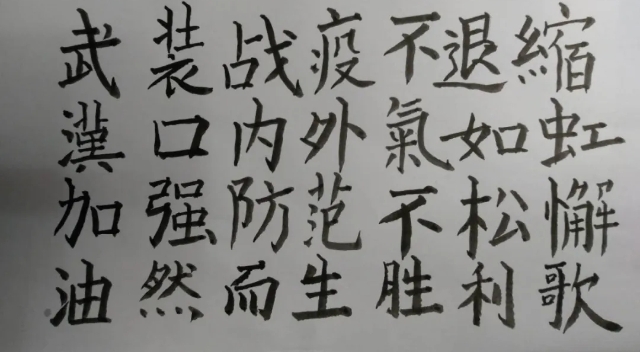 武装战疫不退縮
漢口内外氣如虹
加强防范不松懈
油然而生胜利歌